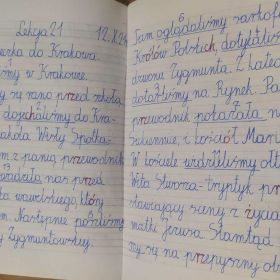 Lekcja 21 12.X.24
do Krakowa
1
w Krakowie.
się rano przed szkołą
dojechaliśmy do Kra-
Wisły Spotka-
z panią przewodnik
13
nas przed
wawelskiego, który
Następnie poszliśmy
Zygmuntowskiej.
6
Tam oglądaliśmy sarkofa
Królów Polskich, dotykaliśm
dzwonu Zygmunta. Z katedr
dotarliśmy na Rynek. Pan
przewodnik pokazała na
sukiennice, i kościół Mari
W kościele widzieliśmy ołt
Wita Stwosza-tryptyk prz
stawiający sceny z życia
matki Jezusa Stamtąd
my się na przepyszny ob